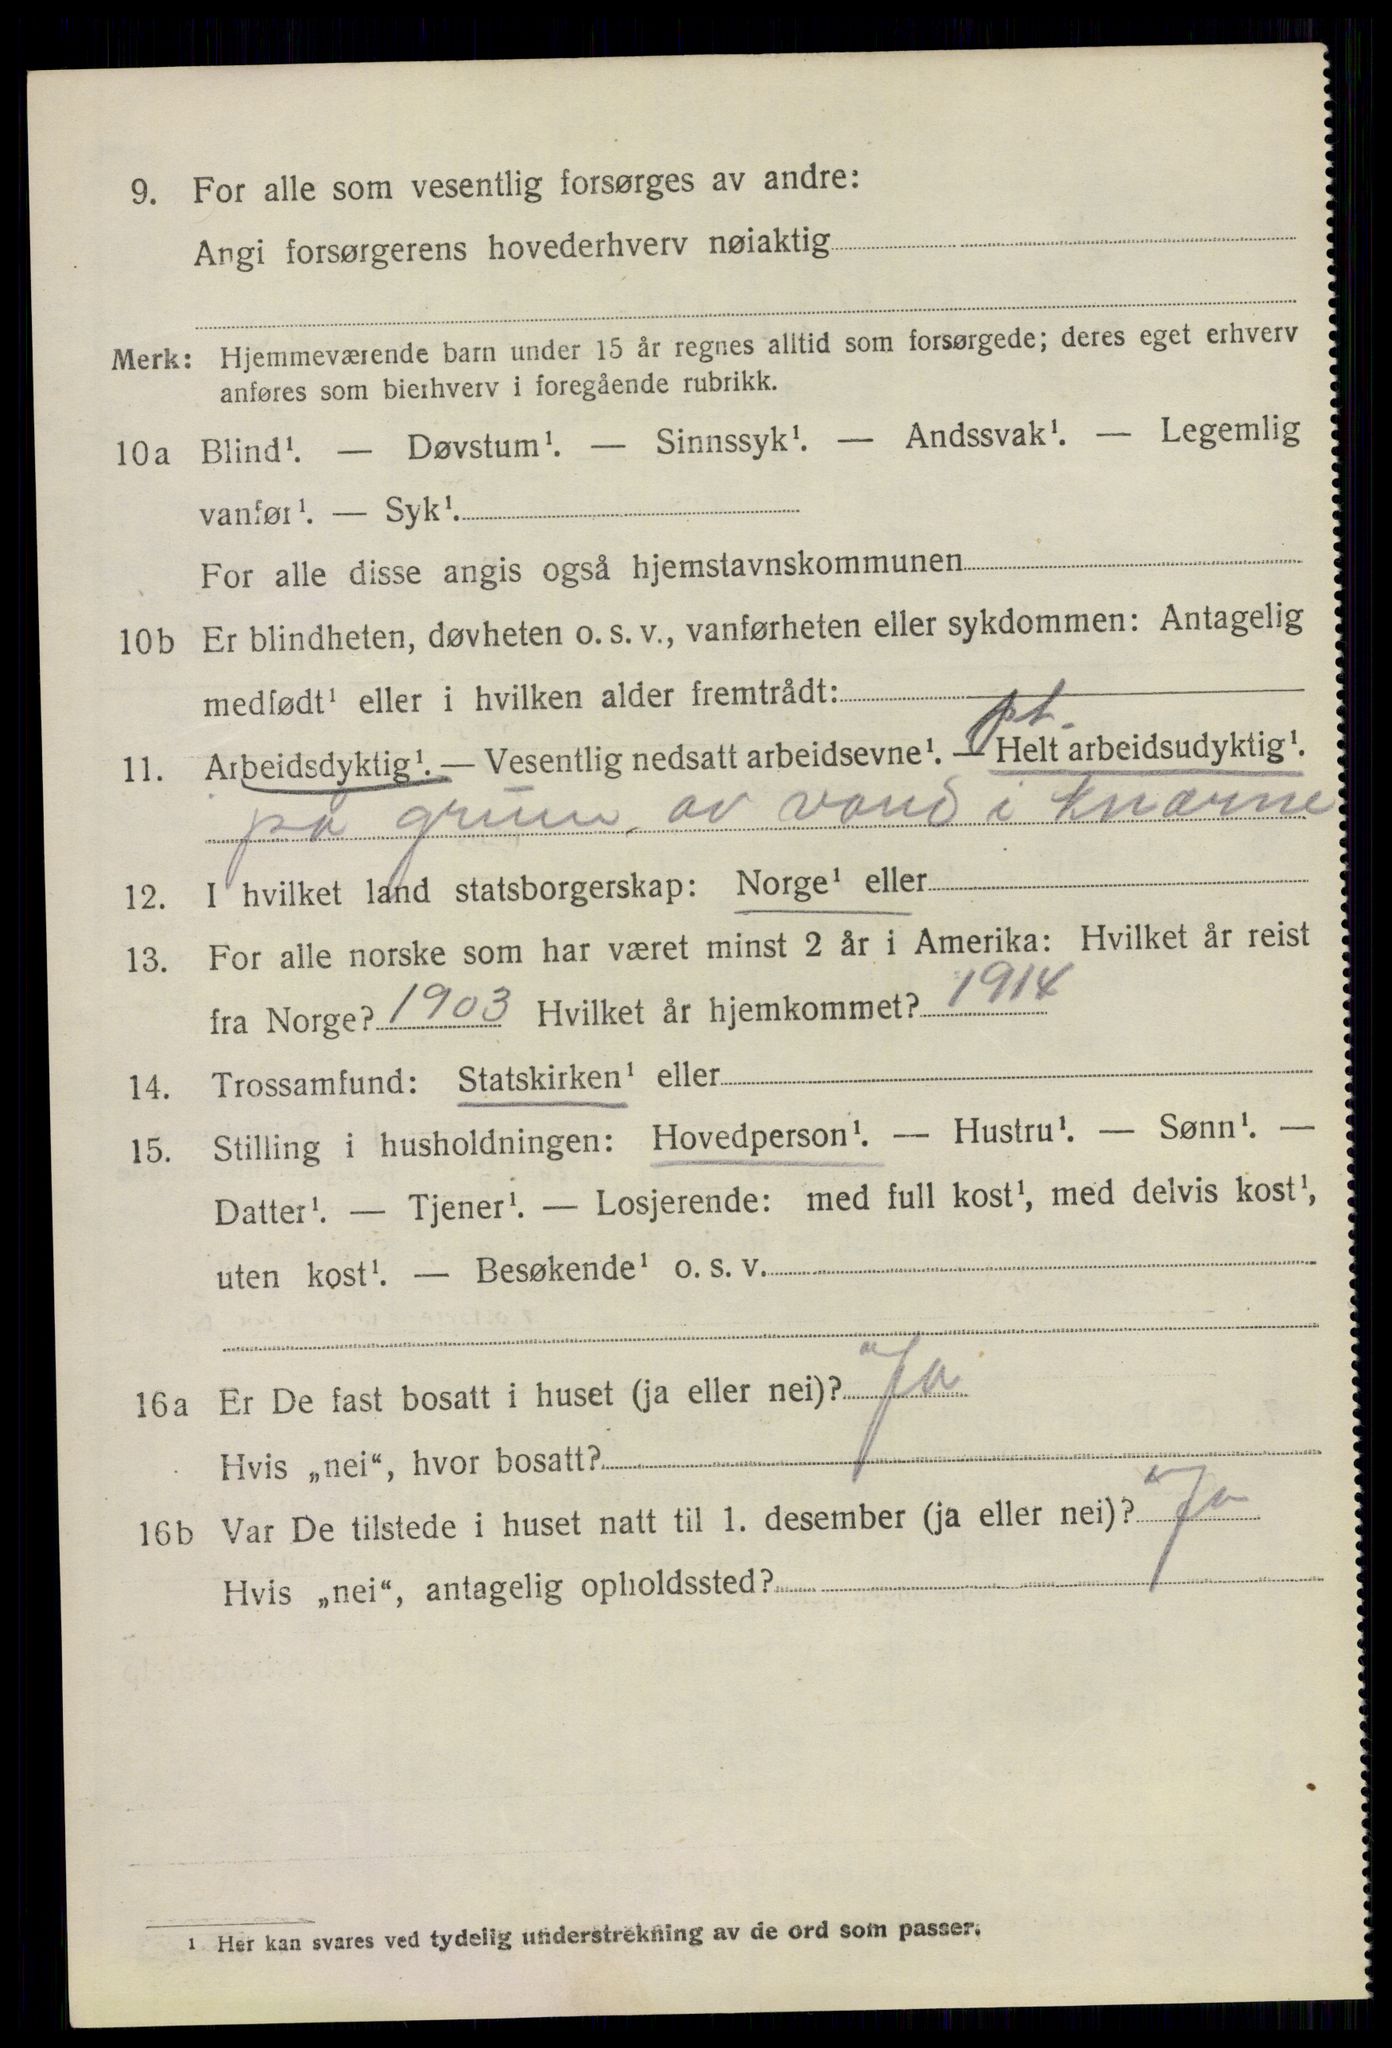 9. For alle som vesentlig forsørges av andre:
Angi forsørgerens hovederhverv nøiaktig
Merk: Hjemmeværende barn under 15 år regnes alltid som forsørgede; deres eget erhverv
anføres som bierhverv i foregående rubrikk.
10a Blind¹. — Døvstum¹. — Sinnssyk¹. — Andssvak¹. — Legemlig
vanfør¹. — Syk¹.
For alle disse angis også hjemstavnskommunen
10b Er blindheten, døvheten o. s. v., vanførheten eller sykdommen: Antagelig
medfødt¹ eller i hvilken alder fremtrådt:
pt.
11. Arbeidsdyktig¹. — Vesentlig nedsatt arbeidsevne¹. — Helt arbeidsudyktig¹.
på grunn av vand i knærne
12. I hvilket land statsborgerskap: Norge¹ eller
13. For alle norske som har været minst 2 år i Amerika: Hvilket år reist
fra Norge? 1903 Hvilket år hjemkommet? 1914
14. Trossamfund: Statskirken¹ eller
15. Stilling i husholdningen: Hovedperson¹. — Hustru¹. — Sønn¹. —
Datter¹. — Tjener¹. — Losjerende: med full kost¹, med delvis kost¹,
uten kost¹. — Besøkende¹ o. s. v.
16a Er De fast bosatt i huset (ja eller nei)? Ja
Hvis „nei“, hvor bosatt?
16b Var De tilstede i huset natt til 1. desember (ja eller nei)? Ja
Hvis „nei“, antagelig opholdssted?
¹ Her kan svares ved tydelig understrekning av de ord som passer.